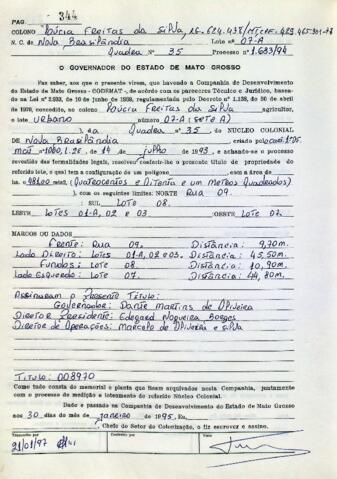 PAG. 344
COLONO Lúcia Freitas da Silva
N. C. de Nova Brasilândia LOTE 07-A
Quadra Nº 35 Processo 1.683/94
O GOVERNADOR DO ESTADO DE MATO GROSSO
Faz saber, aos que o presente virem, que havendo a Companhia de Desenvolvimento
do Estado de Mato Grosso - CODEMAT -, de acordo com os pareceres Técnico e Jurídico, basea-
do na Lei nº 2.933, de 10 de junho de 1939, regulamentada pelo Decreto n.º 1.138, de 30 de abril
de 1970, concedido, ao colono Lúcia Freitas da Silva agricultor,
o lote urbano número 07-A (SETE A)
da Quadra nº 35 do NÚCLEO COLONIAL
DE Nova Brasilândia, criado
de 14 de julho 1993, e achando-se o processo
revestido das formalidades legais, resolveu conferir-lhe o presente título de propriedade do
referido lote, o qual tem a configuração de um polígono com a área de
481,00 (Quatrocentos e Oitenta e um metros quadrados)
, com os seguintes limites: NORTE Rua 09.
SUL Lote 08.
LESTE Lotes 01-A, 02 e 03. OESTE Lote 07.
MARCOS OU DADOS
Frente: Rua 09. Distância: 9,70m.
Lado Direito: Lotes 01-A, 02 e 03. Distância: 45,50m.
Fundos: Lote 08. Distância: 10,90m.
Lado Esquerdo: Lote 07. Distância: 44,80m.
Assinaram o Presente Título:
Governador: Dante Martins de Oliveira
Diretor Presidente: Edegard Nogueira Borges
Diretor de Operações: Marcelo de Oliveira e Silva
Título: 008970
Como tudo consta do memorial e planta que ficam arquivados nesta Companhia, juntamente
com o processo de medição e loteamento do referido Núcleo Colonial.
Dado e passado na Companhia de Desenvolvimento do Estado de Mato Grosso
aos 30 dias do mês de janeiro de 1995.
Chefe do Setor de Colonização, o fiz escrever e assino.
21/01/97